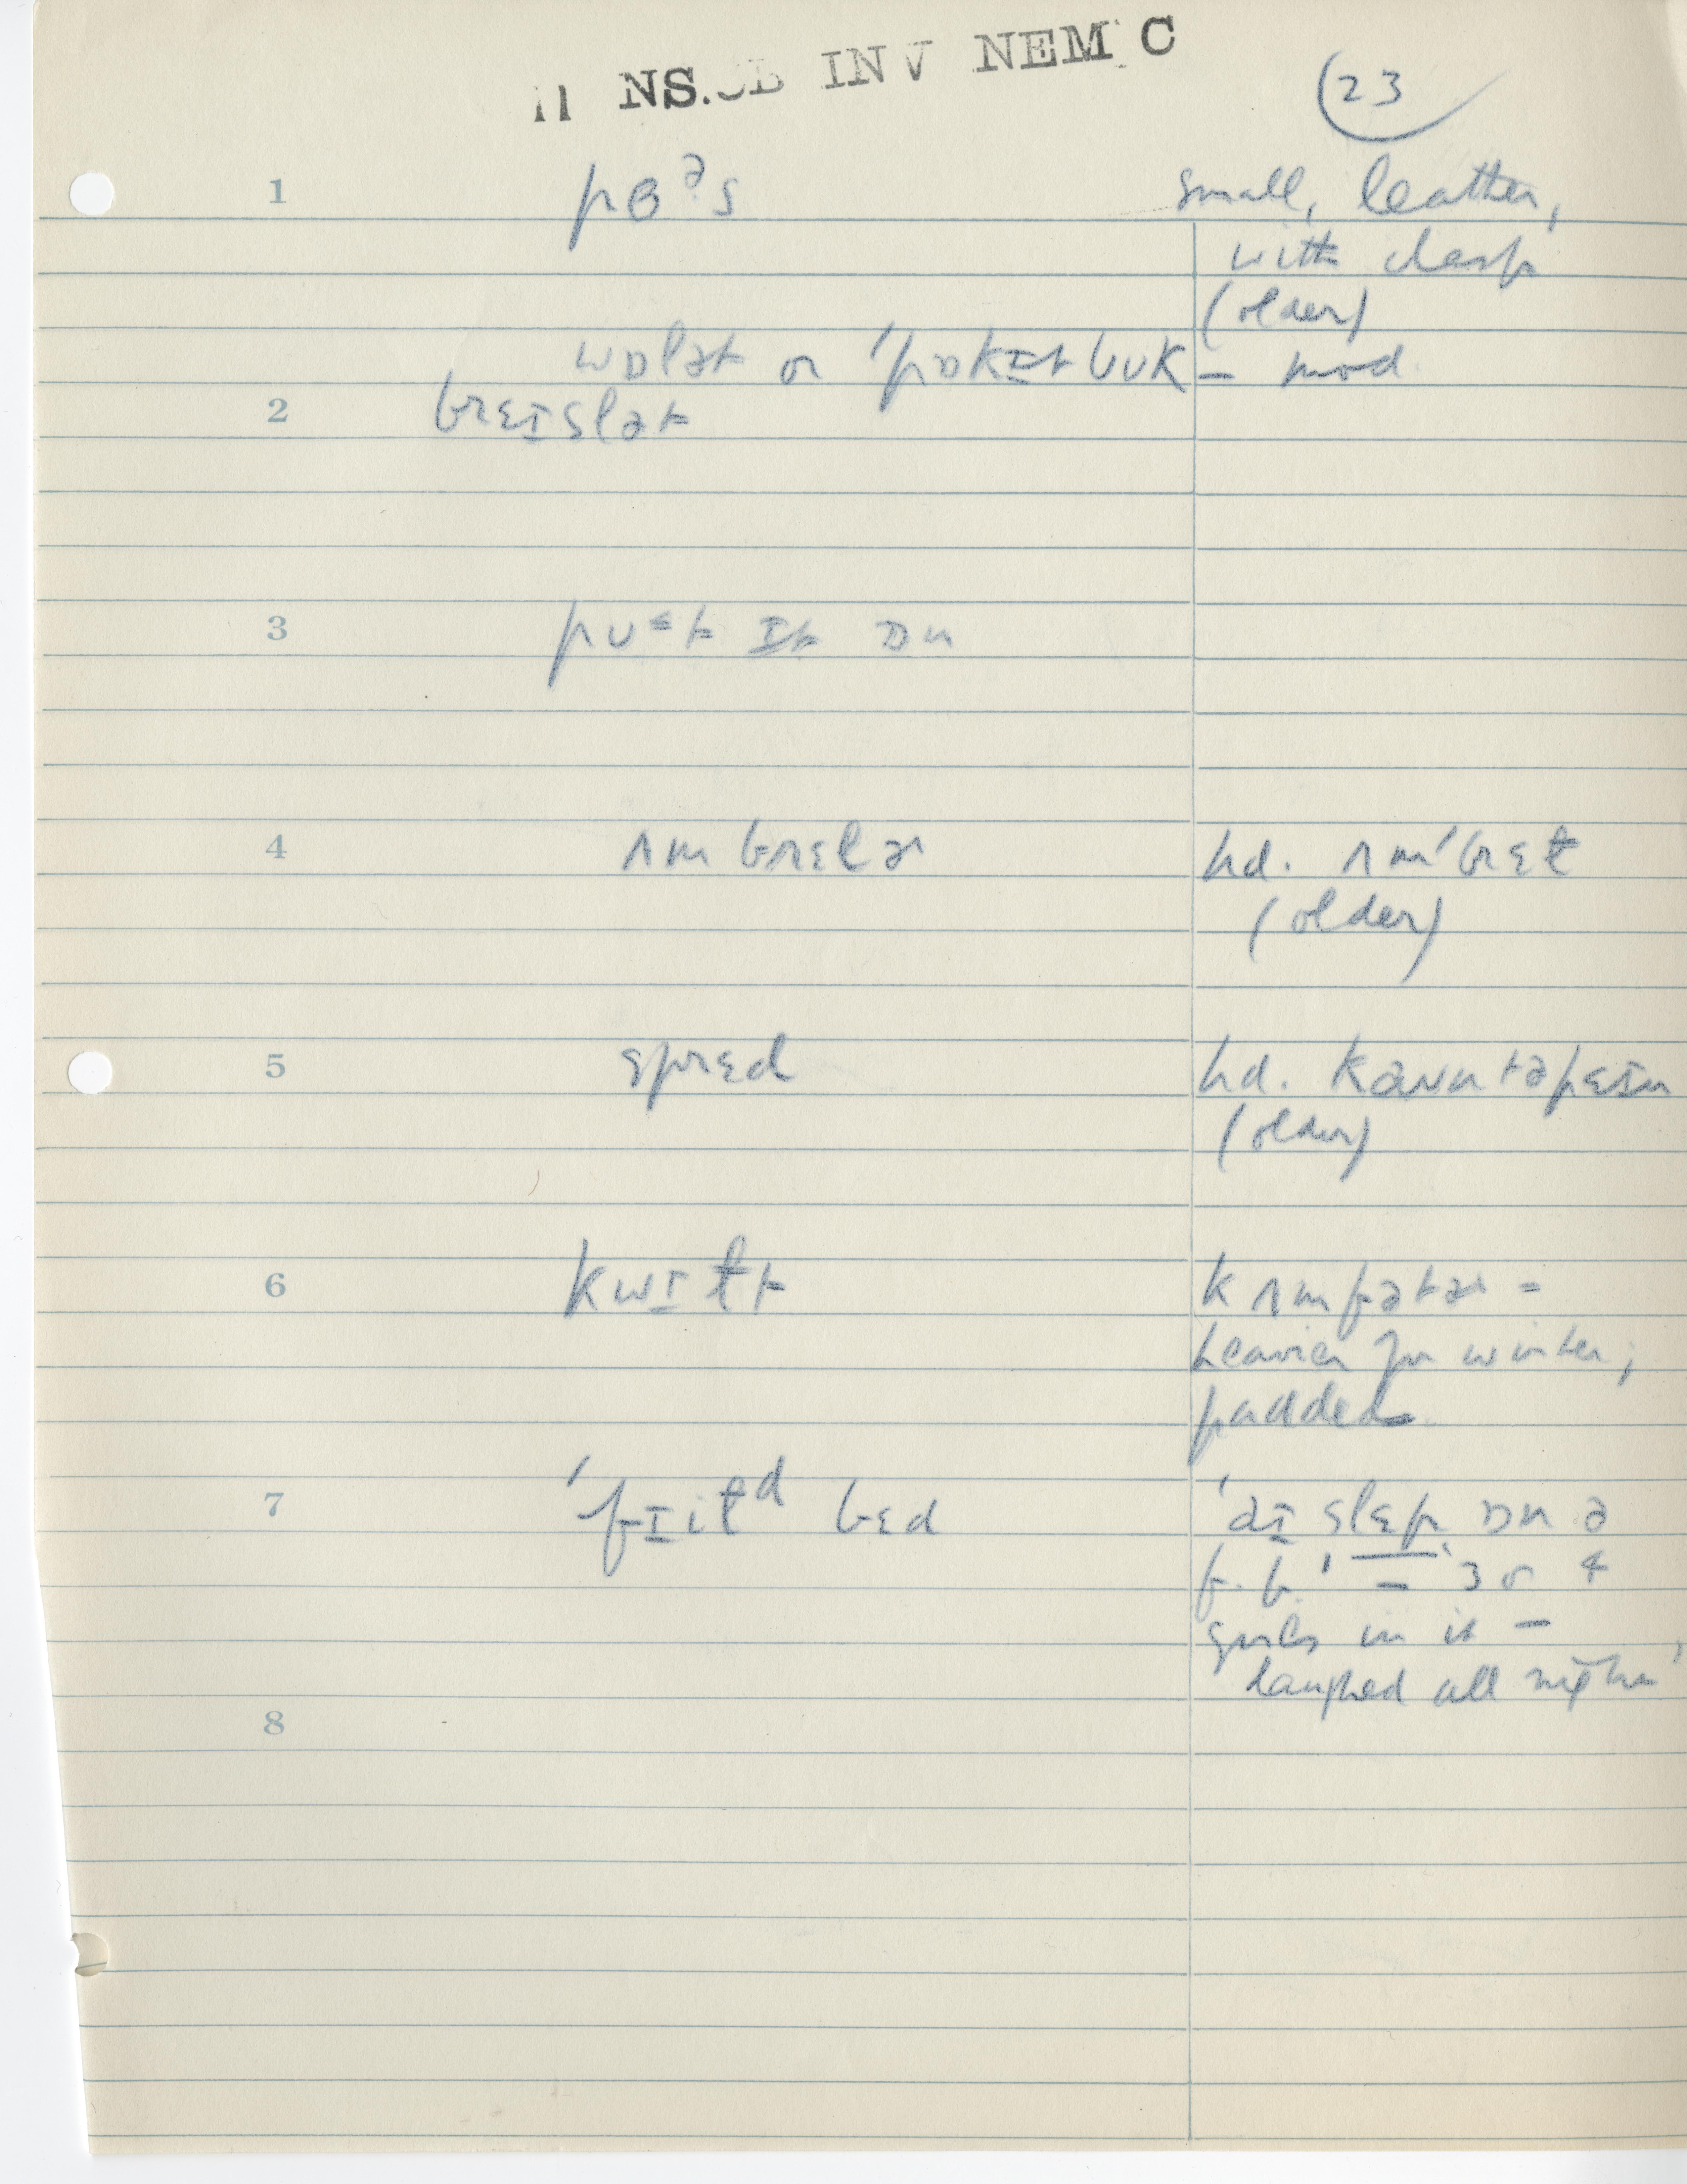 NS. IN V NEM C
23
1 pɵˀs small, leather,
with clasp
(older)
wɒlət or 'pɒkɪt bʊk – mod.
2 brɛɪslət
3 pʊt ɪt ɒn
4 ʌmbrɛlɚ hd. ʌm'brɛɫ
(older)
5 sprɛd hd. kaʊntəpɛɪn
(older)
6 kwɪɫt kʌmfətɚ =
heavier for winter;
padded
7 'fɪiɫᵈ bɛd 'aɪ slɛp ɒn ə
f.b.' – 3 or 4
girls in it –
laughed all night
8